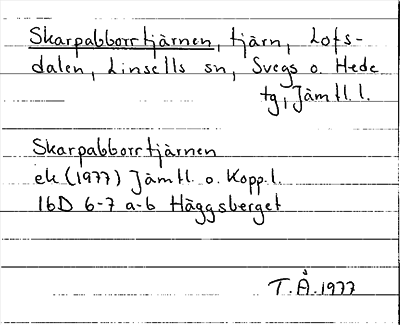 Skarpabborrtjärnen, tjärn, Lofs-
dalen, Linsells sn, Svegs o. Hede
tg, Jämtl. l.
Skarpabborrtjärnen
ek (1977) Jämtl. o. Kopp. l.
16D 6-7 a-b Häggsberget
T.Å. 1977